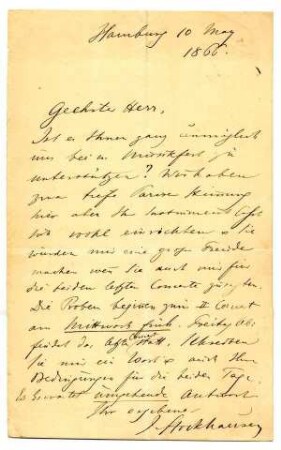 Hamburg 10 May
1866.
Geehrter Herr,
Ist es Ihnen ganz unmöglich
uns beim Musikfest zu
unterstützen? Wir haben
zwar tiefe Pariser Stimmung
hier aber Ihr Instrument läßt
sich wohl einrichten & Sie
würden mir eine große Freude
machen wen Sie auch nur für
die beiden letzten Concerte zusagten.
Die Proben beginnen zum II Concert
am Mittwoch früh. Freitag Ab:
findet das letzte statt. Schreiben
Sie mir ein Wort & auch Ihre
Bedingungen für die beiden Tage.
Es erwartet umgehende Antwort
Ihr ergebener
J. Stockhausen